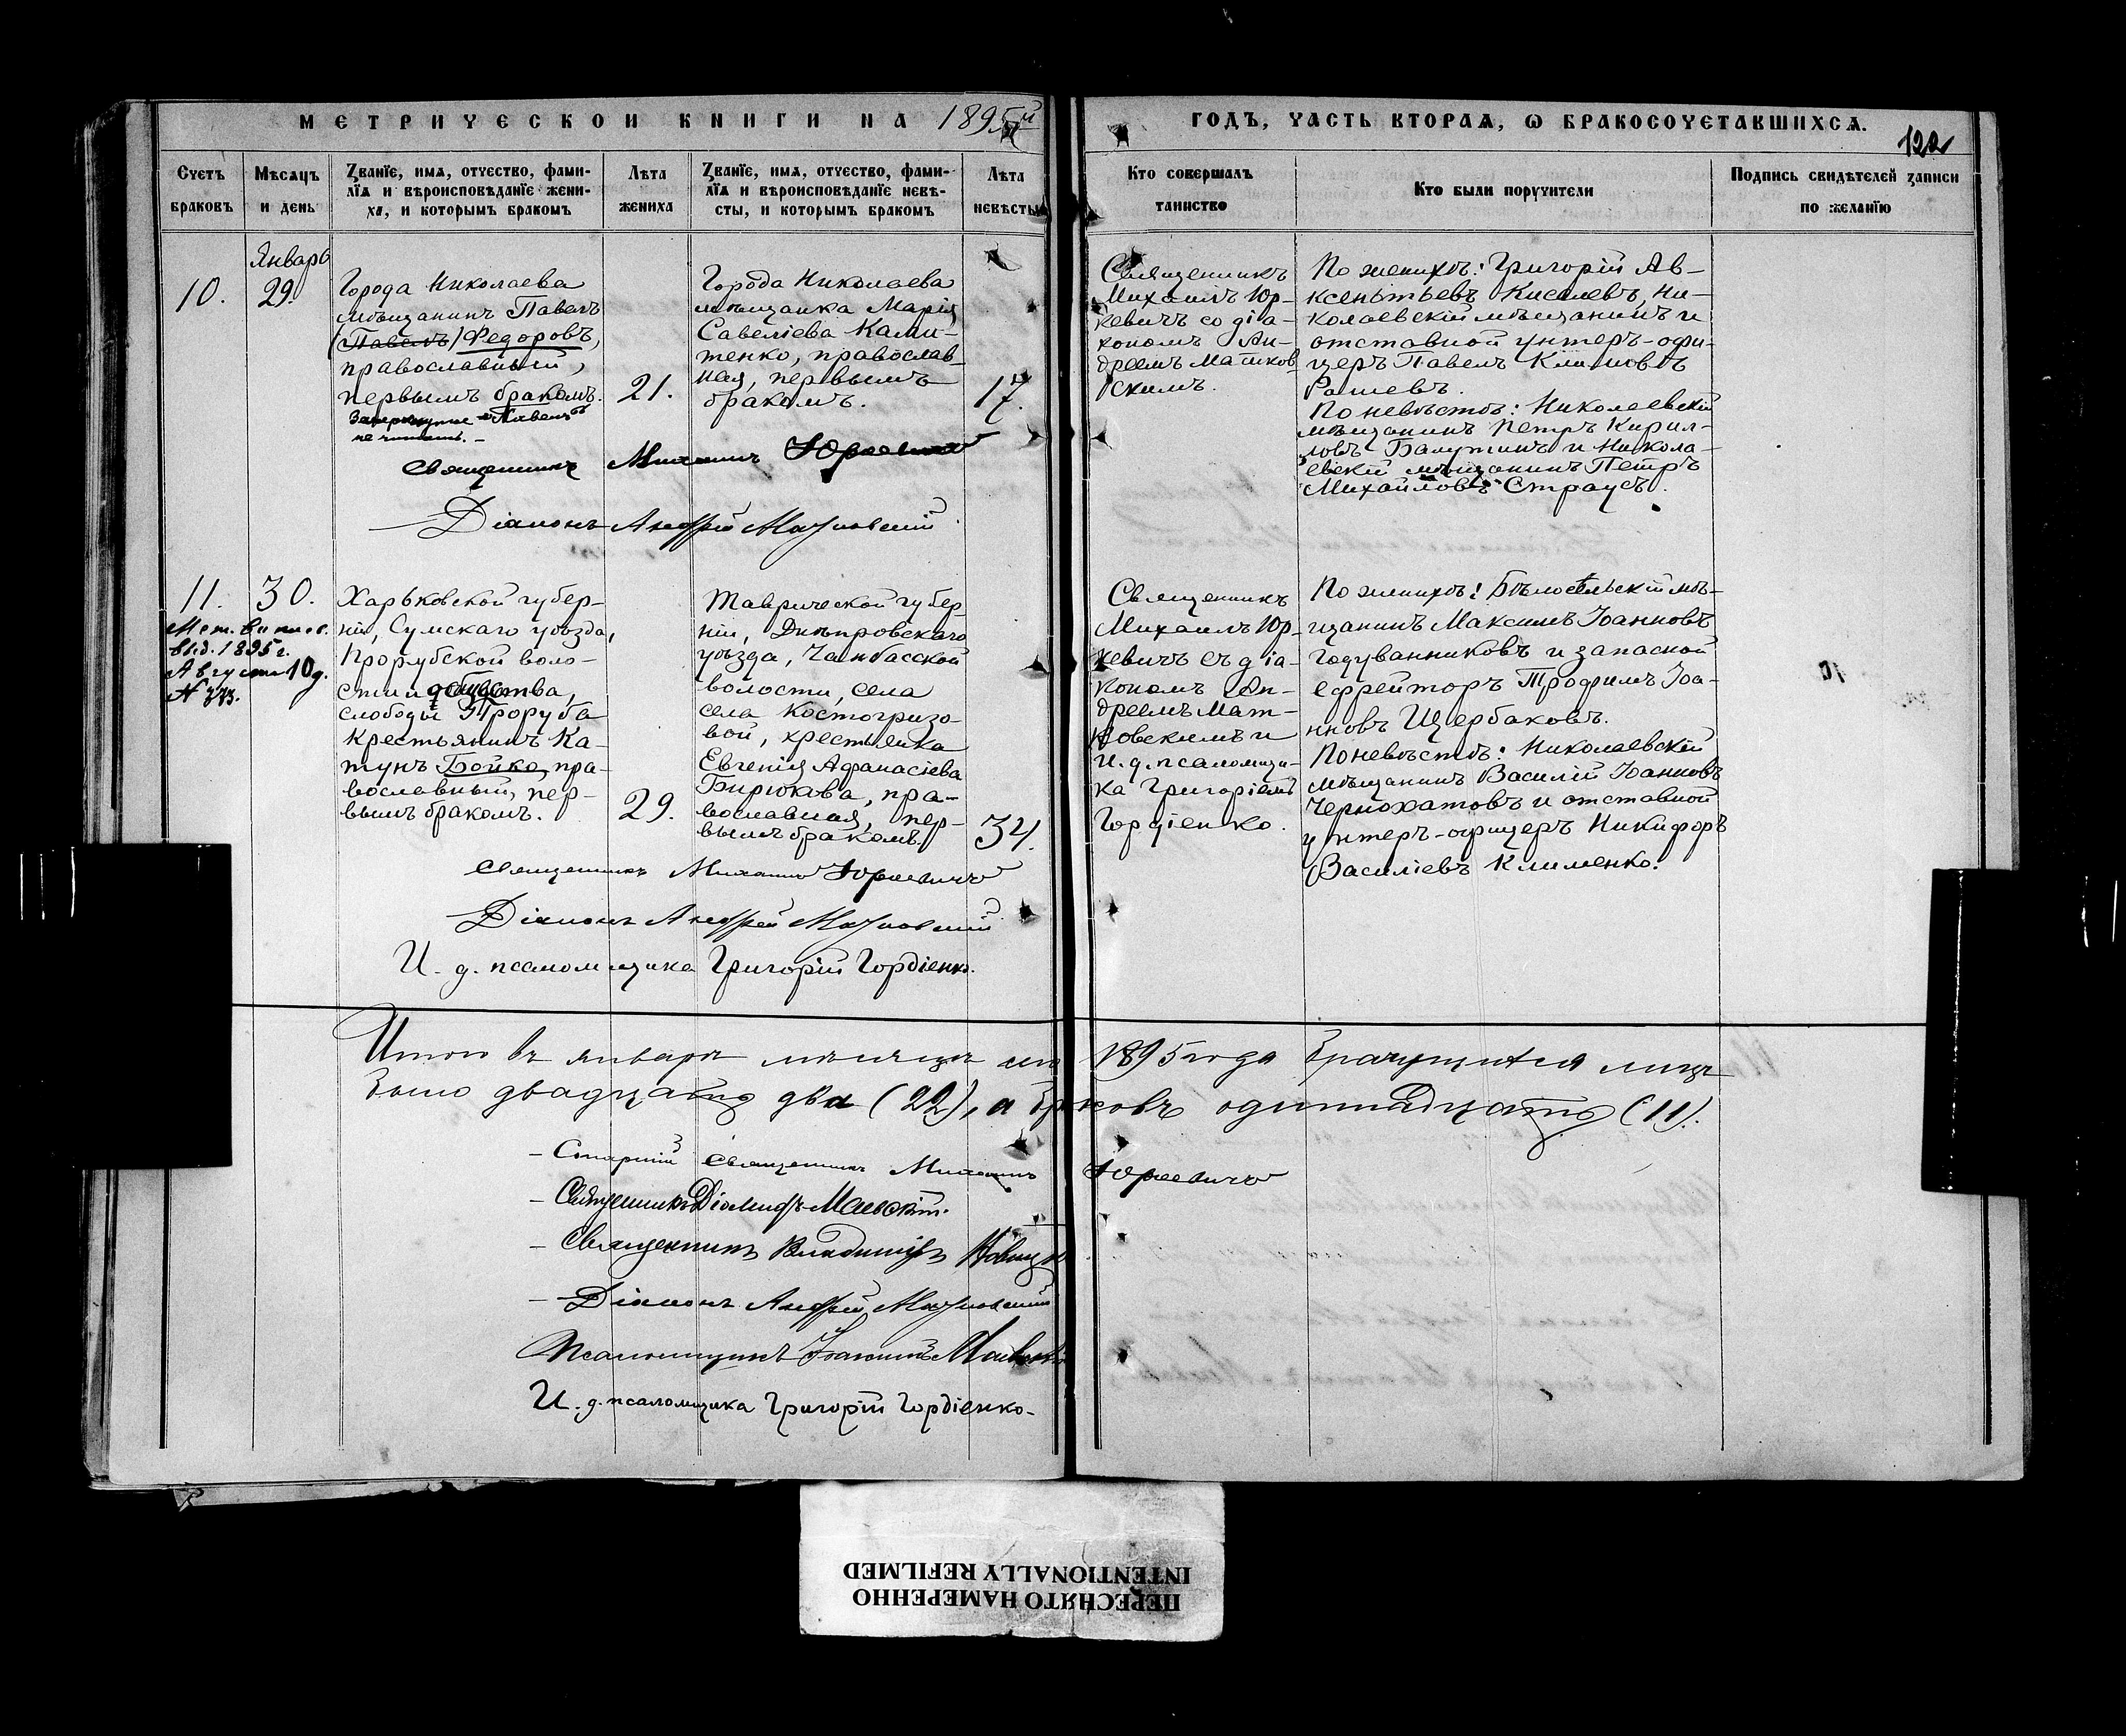 МЕТРИЧЕСКОЙ КНИГИ НА 1895й
ГОДЪ, ЧАСТЬ ВТОРАЯ, Ѡ БРАКОСОЧЕТАВШИХСЯ.
122
Счетъ браковъ
Мѣсяцъ и день
Званїе, имя, отчество, фами-
лїя и вѣроисповѣданїе жени-
ха, и которымъ бракомъ
Лѣта жениха
Званїе, имя, отчество, фами-
лїя и вѣроисповѣданїе невѣ-
сты, и которымъ бракомъ
Лѣта невѣсты
Кто совершалъ
таинство
Кто были поручители
Подпись свидѣтелей записи
по желанїю
10.
Январь
29.
Города Николаева
мѣщанинъ Павелъ
(Павелъ) Федоровъ,
православный,
первымъ бракомъ.
Зачеркнутое "Павелъ"
не читать.-
21.
Города Николаева
мѣщанка Марія
Савеліева Кали-
тенко, православ-
ная, первымъ
бракомъ.
17.
Священникъ Михаилъ Юркевичъ
Діаконъ Андрей Матковскій
Священникъ
Михаилъ Юр-
кевичъ со діа-
кономъ Ан-
дреемъ Матков-
скимъ.
По женихѣ: Григорій Ав-
ксентьевъ Киселевъ, Ни-
колаевскій мѣщанинъ и
отставной унтеръ-офи-
церъ Павелъ Климовъ
Рашевъ.
По невѣстѣ: Николаевскій
мѣщанинъ Петръ Кирил-
ловъ и Никола-
евскій мѣщанинъ Петръ
Михайловъ Страусъ.
11.
30.
Мет. выпис.
выд. 1895 г.
Августа 10 д.
Харьковской губер-
ніи, Сумскаго уѣзда,
Прорубской воло-
сти и общества,
слободы Проруба
крестьянинъ Ка-
тунъ Бойко, пра-
вославный, пер-
вымъ бракомъ.
29.
Таврической губер-
ніи, Днѣпровскаго
уѣзда, Чалбасской
волости, села
села Костогризо-
вой, крестьянка
Евгенія Афанасіева
Бирюкова, пра-
вославная, пер-
вымъ бракомъ.
34.
Священникъ Михаилъ Юркевичъ
Діаконъ Андрей Матковскій
И. д. псаломщика Григорій Гордіенко.
Священникъ
Михаилъ Юр-
кевичъ съ діа-
кономъ Ан-
дреемъ Мат-
ковскимъ и
и. д. псаломщи-
ка Григоріемъ
Гордіенко.
По женихѣ: Бѣлосельскій мѣ-
щанинъ Максимъ Іоанновъ
Годуванниковъ и запасной
ефрейторъ Трофимъ Іоа-
нновъ Щербаковъ.
По невѣстѣ: Николаевскій
мѣщанинъ Василій Іоанновъ
Чернохатовъ и отставной
унтеръ-офицеръ Никифоръ
Василіевъ Клименко.
Итого въ январѣ мѣсяцѣ сего 1895 года брачущихся лицъ
было двадцать два (22), а браковъ одиннадцать (11).
- Старшій Священникъ Михаилъ Юркевичъ
- Священникъ Діомидъ Маевскій.
- Священникъ Владиміръ
- Діаконъ Андрей Матковскій
Псаломщикъ Іоаннъ
И. д. псаломщика Григорій Гордіенко.
ПЕРЕСНЯТО НАМЕРЕННО
INTENTIONALLY REFILMED